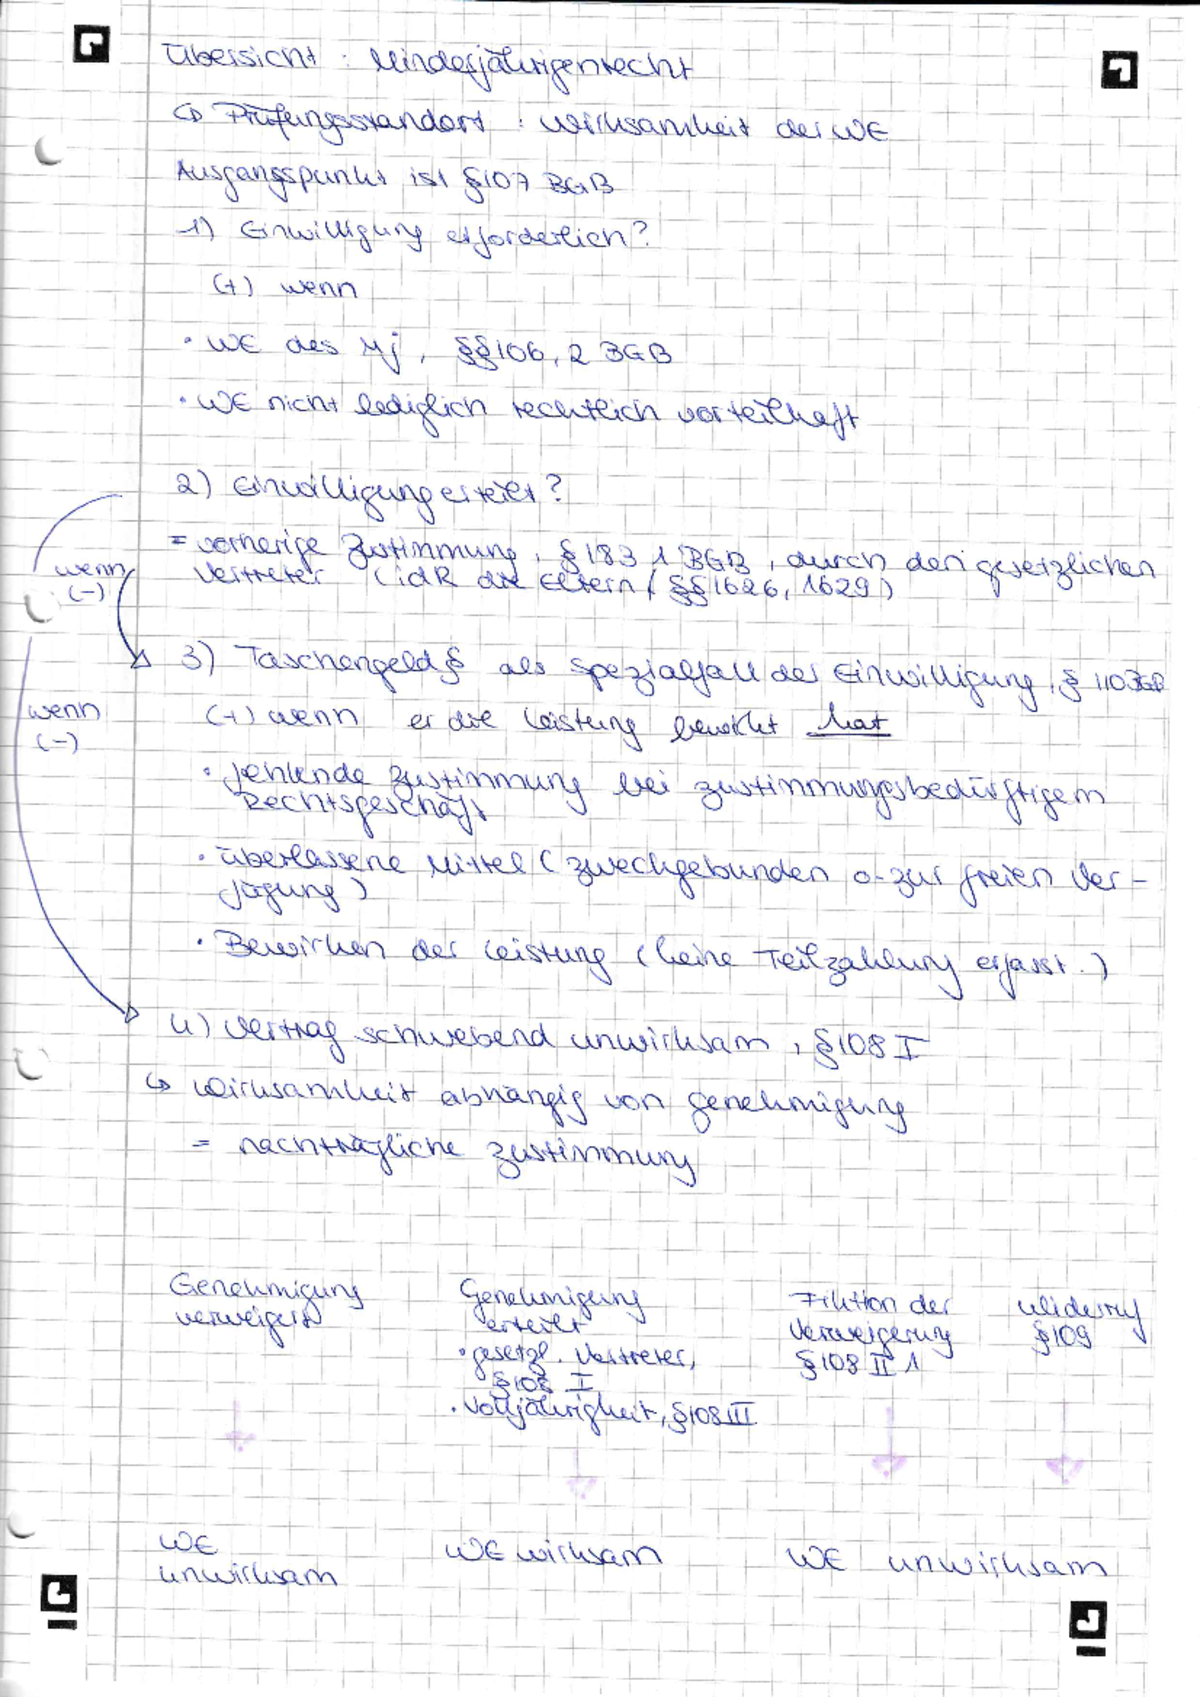 Übersicht : Minderjährigenrecht
↳ Prüfungsstandort : Wirksamkeit der WE
Ausgangspunkt ist §107 BGB
1) Einwilligung erforderlich?
(+) wenn
• WE des Mj, §§106, 2 BGB
• WE nicht lediglich rechtlich vorteilhaft
2) Einwilligung erteilt?
= vorherige Zustimmung, §183 1 BGB, durch den gesetzlichen
Vertreter (idR die Eltern, §§1626, 1629)
wenn
(-)
3) Taschengeld§ als Spezialfall der Einwilligung, §110 BGB
(+) wenn er die Leistung bewirkt hat
wenn
(-)
• fehlende Zustimmung bei zustimmungsbedürftigem
Rechtsgeschäft
• überlassene Mittel (zweckgebunden o. zur freien Ver-
fügung)
• Bewirken der Leistung (keine Teilzahlung erfasst.)
4) Vertrag schwebend unwirksam, §108 I
↳ Wirksamkeit abhängig von Genehmigung
= nachträgliche Zustimmung
Genehmigung
verweigert
Genehmigung
erteilt
• gesetzl. Vertreter,
§108 I
• Volljährigkeit, §108 III
Fiktion der
Verweigerung
§108 II 1
Widerruf
§109
WE
unwirksam
WE wirksam
WE unwirksam